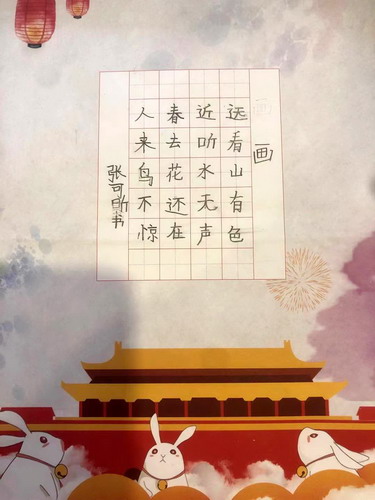 画
远看山有色
近听水无声
春去花还在
人来鸟不惊
张可昕书